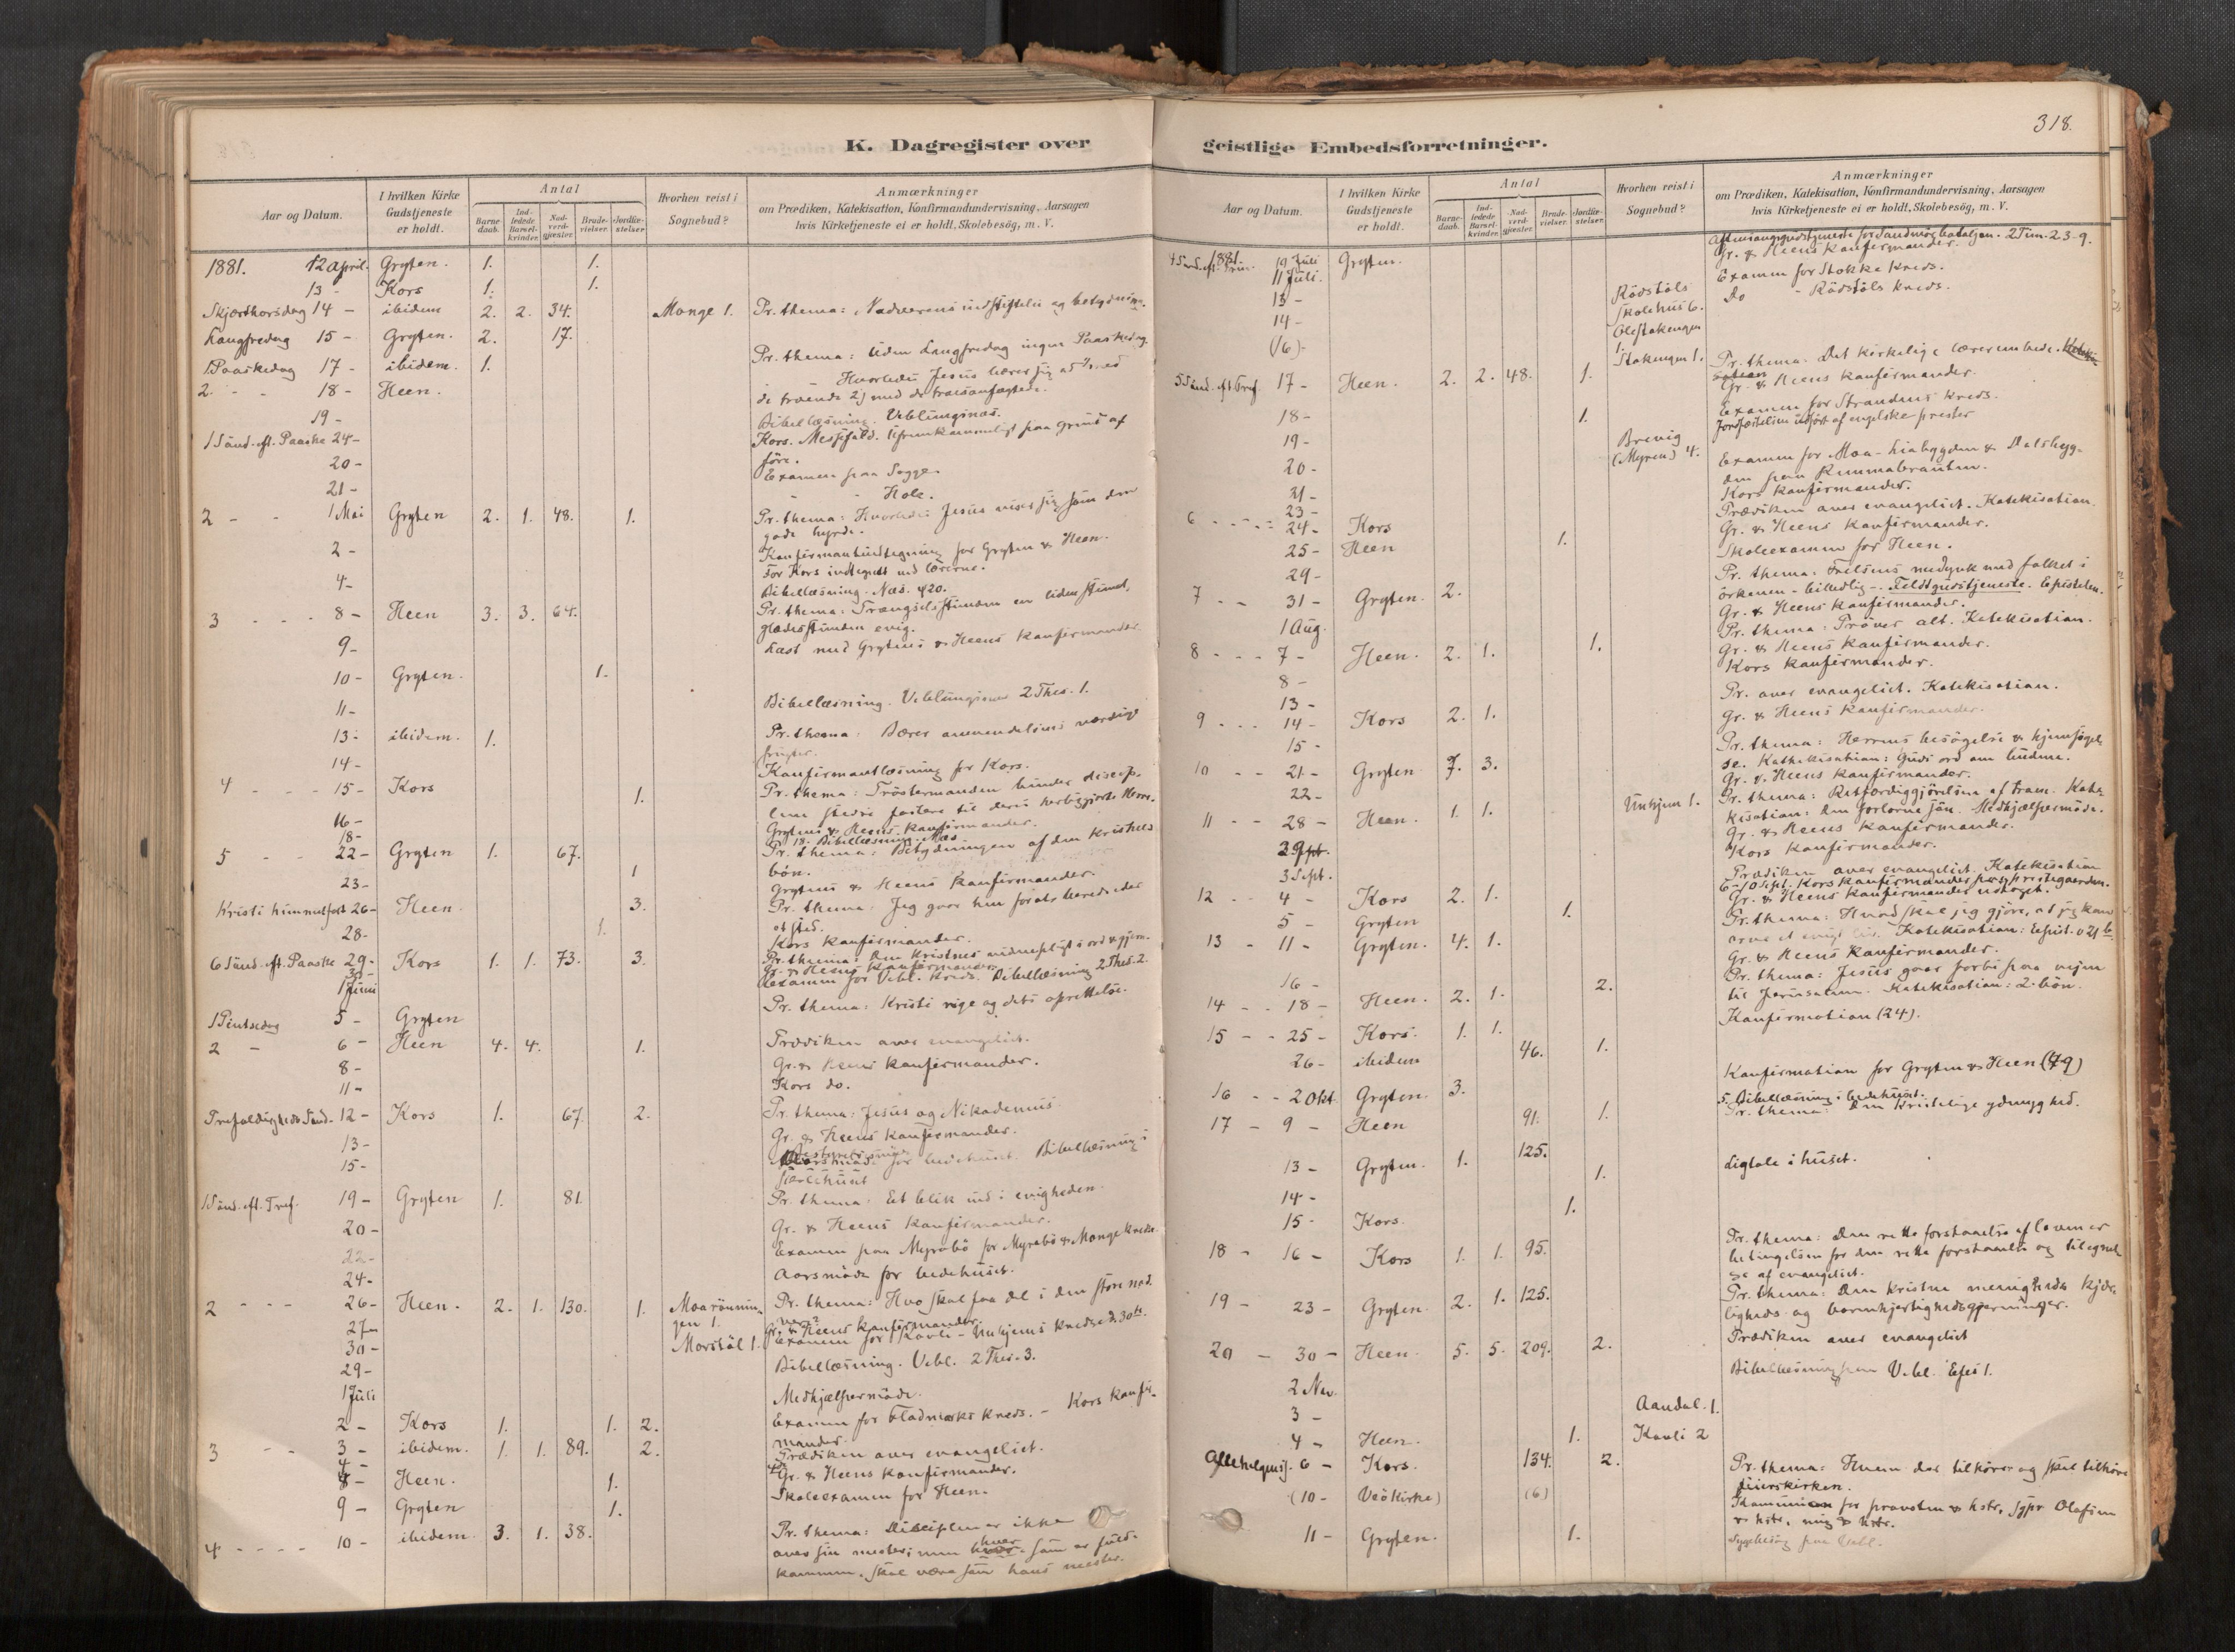 K. Dagregister over
Aar og Datum.
I hvilken Kirke Gudstjeneste er holdt.
Antal
Barnedaab.
Indledede Barselkvinder.
Nadverdgjester.
Brudevielser.
Jordfæstelser.
Hvorhen reist i Sognebud?
Anmærkninger
om Prædiken, Katekisation, Konfirmandundervisning, Aarsagen
hvis Kirketjeneste ei er holdt, Skolebesøg, m. V.
1881. 12 april. Gryten. 1. 1.
13 - Kors 1. 1.
Skjærthorsdag 14 - ibidem 2. 2. 34. Monge 1. Pr. thema: Nadverens indstiftelse og betydning.
Langfredag 15 - Gryten. 2. 17.
Pr. thema: Uden Langfredag ingen Paaskedag.
1 Paaskedag 17 - ibidem. 1.
2. - - 18 - Heen. Hvorledes Jesus
19 - Bibellæsning. Veblungsnæs.
1 Sønd. eft. Paaske 24 - Kors. Messefald. Ufremkommeligt paa grund af
føre.
20 - Examen paa Sogge.
21 - - - Hole.
2 - - 1 Mai Gryten 2. 1. 48. 1. Pr. thema: Hvorledes Jesus viser sig som den
gode hyrde.
2 - Konfirmantindtegning for Gryten & Heen.
For Kors indtegnet ved lærerne.
4 - Bibellæsning. Næs.
3 - - - 8 - Heen 3. 3. 64. Pr. thema: Trængselsstunden en liden stund,
glædesstunden evig.
9 - Læst med Grytens & Heens konfirmander
10 - Gryten. 1.
11 - Bibellæsning. Veblungsnæs 2 Thes. 1.
13 - ibidem. 1. Pr. thema: Bærer omvendelsens værdige
frugter.
14 - Konfirmantlæsning for Kors.
4 - - - 15 - Kors 1. Pr. thema: Trøstermanden binder
16 - Grytens & Heens konfirmander.
18 - 18. Bibellæsning. Næs.
5 - - 22 - Gryten 1. 67. Pr. thema: Betydningen af den kristnes
bøn.
23 - 1 Grytens & Heens konfirmander.
Kristi himmelfart 26 - Heen 3. Pr. thema: Jeg gaar hen for at berede eder
et sted.
28 - 1. Kors konfirmander.
6 Sønd. eft. Paaske 29 - Kors 1. 1. 73. 3. Pr. thema: Den kristnes vidnepligt i ord & gjern.
30 - Gr. & Heens konfirmander.
1 Juni Examen for Vebl. kreds. Bibellæsning 2 Thes. 2.
1 Pintsedag 5 - Gryten Pr. thema: Kristi rige og dets oprettelse.
2 - 6 - Heen 4. 4. 1. Prædiken over evangeliet.
8 - Gr. & Heens konfirmander.
11 - Kors do.
Trefoldigheds Sønd. 12 - Kors 1. 67. 2. Pr. thema: Jesus og Nikodemus.
13 - Gr. & Heens konfirmander.
15 - for bedehuset. Bibellæsning i
1 Sønd. eft. Tref. 19 - Gryten 1. 81. Pr. thema: Et blik ind i evigheden.
20 - Gr. & Heens konfirmander.
22 - Examen paa Myrebø for Myrebø & Monge kreds.
24 - Aarsmøde for bedehuset.
2 - - - 26 - Heen. 2. 1. 130. 1. Moarønningen 1. Pr. thema: Hvo skal faa del i den store nad
vere?
27 - Gr. & Heens konfirmander.
30 - Morstøl 1. Examen for Kavli - Unhjems kreds d. 30te.
29 - Bibellæsning. Vebl. 2 Thes. 3.
1 Juli Medhjælpermøde.
2 - Kors 1. 1. 2. Examen for Fladmarks kreds. - Kors konfir-
mander.
3 - - 3 - ibidem. 1. 1. 89. 2. Prædiken over evangeliet.
4 - Gr. & Heens konfirmander.
8 - Heen. 1. Skoleexamen for Heen.
9 - Gryten 1.
4 - - - - 10 - ibidem. 3. 1. 38. Pr. thema: Disciplen er ikke
over sin mester; men hver som er fuld-
kommen, skal være som hans mester.
318.
geistlige Embedsforretninger.
Aar og Datum.
I hvilken Kirke Gudstjeneste er holdt.
Antal
Barnedaab.
Indledede Barselkvinder.
Nadverdgjester.
Brudevielser.
Jordfæstelser.
Hvorhen reist i Sognebud?
Anmærkninger
om Prædiken, Katekisation, Konfirmandundervisning, Aarsagen
hvis Kirketjeneste ei er holdt, Skolebesøg, m. V.
1881. Gryten. 2 Tim. 2. 3-9.
11 Juli. Gr. & Heens konfirmander.
13 - Rödstöls skolehus 6. Examen for Stokke kreds.
14 - Do - Rödstöls kreds.
(16) - Stokengen 1.
5 Sønd. eft. Tref. 17 - Heen. 2. 2. 48. 1. Pr. thema: Det kirkelige lærerembede.
18 - 1. Gr. & Heens konfirmander.
19 - Brevig (Myren) 4. Examen for Strandens kreds.
Jordfæstelsen udført af engelske prester
20 - Examen for Moa - Liabygden & Dalsbyg-
den paa Rummabrauten.
21 - Kors konfirmander.
23 -
6 - - - - 24 - Kors Prædiken over evangeliet. Katekisation.
25 - Heen 1. Gr. & Heens konfirmander.
29 - Skoleexamen for Heen.
7 - - 31 - Gryten. 2. Pr. thema: Frelserens medynk med folket i
ørkenen - billedlig -. Feldtgudstjeneste. Epistelen.
1 Aug. Gr. & Heens konfirmander.
8 - - - 7 - Heen. 2. 1. 1. Pr. thema: Prøver alt. Katekisation.
8 - Gr. & Heens konfirmander.
13 - Kors konfirmander.
9 - - - 14 - Kors 2. 1. Pr. over evangeliet. Katekisation.
15 - Gr. & Heens konfirmander.
10 - - 21 - Gryten 7. 3. Pr. thema: Herrens besøgelse & hjemsøgel-
se. Katekisation: Guds ord om budene.
22 - Gr. & Heens konfirmander.
11 - - 28 - Heen. 1. 1. Unhjem 1. Pr. thema: Retfærdiggjørelsen af troen. Kate-
kisation: Den forlorne søn. Medhjælpermøde.
Gr. & Heens konfirmander.
3 Sept. Kors konfirmander.
12 - - 4 - Kors 2. 1. Prædiken over evangeliet. Katekisation
6-10 Sept. Kors konfirmander paa prestegaarden.
5 - Gryten 1. Gr. & Heens konfirmander
13 - 11 - Gryten. 4. 1. Pr. thema: Hvad skal jeg gjøre, at jeg kan
arve et evigt liv. Katekisation:
16 - Gr. & Heens konfirmander.
14 - - 18 - Heen. 2. 1. 2. Pr. thema: Jesus gaar forbi paa vejen
til Jerusalem. Katekisation: 2. bøn.
15 - - 25 - Kors. 1. 1. Konfirmation (24).
26 - ibidem 46. 1.
16 - - 2 Okt. Gryten. 3. Konfirmation for Gryten & Heen (79)
5. Bibellæsning i bedehuset.
17 - 9 - Heen 91. 1. Pr. thema: Den kristelige ydmyghed.
13 - Gryten. 1. 125. 1. Ligtale i huset.
14 - 1.
15 - Kors.
18 - 16 - Kors 1. 1. 95. Pr. thema: Den rette forstaaelse af loven er
betingelsen for den rette forstaaelse og tilegnel-
se af evangeliet.
19 - 23 - Gryten. 2. 1. 125. Pr. thema: Den kristne menigheds kjær-
ligheds- og barmhjertighedsgjerninger.
20 - 30 - Heen. 5. 5. 209. 2. Prædiken over evangeliet
2 Nov. Bibellæsning paa Vebl. Efes 1.
3 - Aandal. 1.
4 - Heen. 1. Kavli 2
Allehelgens d. 6 - Kors. 134. 2. Pr. thema: Hvem der tilhører og skal tilhøre
seierskirken.
(10 - Veö Kirke) (6) Kommunion for provsten & hstr, sgpr Olafsen
& hstr, mig & hstr.
11 - Gryten. 1. Sygebesøg paa Vebl.